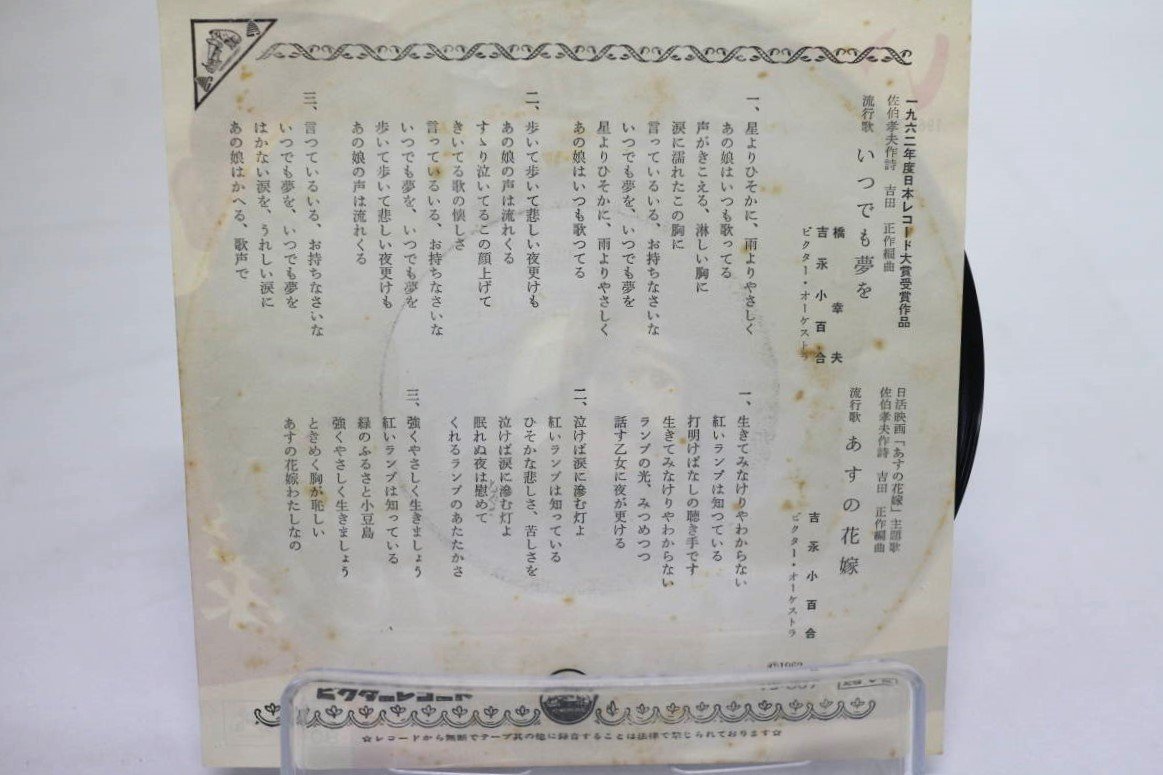 一九六二年度日本レコード大賞受賞作品
佐伯孝夫作詩 吉田 正作編曲
流行歌 いつでも夢を
橋 幸夫
吉永小百合
ビクター・オーケストラ
一、星よりひそかに、雨よりやさしく
あの娘はいつも歌ってる
声がきこえる、淋しい胸に
涙に濡れたこの胸に
言っているいる、お持ちなさいな
いつでも夢を、いつでも夢を
星よりひそかに、雨よりやさしく
あの娘はいつも歌つてる
二、歩いて歩いて悲しい夜更けも
あの娘の声は流れくる
すゝり泣いてるこの顔上げて
きいてる歌の懐しさ
言っているいる、お持ちなさいな
いつでも夢を、いつでも夢を
歩いて歩いて悲しい夜更けも
あの娘の声は流れくる
三、言つているいる、お持ちなさいな
いつでも夢を、いつでも夢を
はかない涙を、うれしい涙に
あの娘はかへる、歌声で
日活映画「あすの花嫁」主題歌
佐伯孝夫作詩 吉田 正作編曲
流行歌 あすの花嫁
吉永小百合
ビクター・オーケストラ
一、生きてみなけりやわからない
紅いランプは知つている
打明けばなしの聴き手です
生きてみなけりやわからない
ランプの光、みつめつつ
話す乙女に夜が更ける
二、泣けば涙に滲む灯よ
紅いランプは知っている
ひそかな悲しさ、苦しさを
泣けば涙に滲む灯よ
眠れぬ夜は慰めて
くれるランプのあたたかさ
三、強くやさしく生きましょう
紅いランプは知っている
緑のふるさと小豆島
強くやさしく生きましょう
ときめく胸が恥しい
あすの花嫁わたしなの
ビクターレコード
☆レコードから無断でテープ其の他に録音することは法律で禁じられております☆